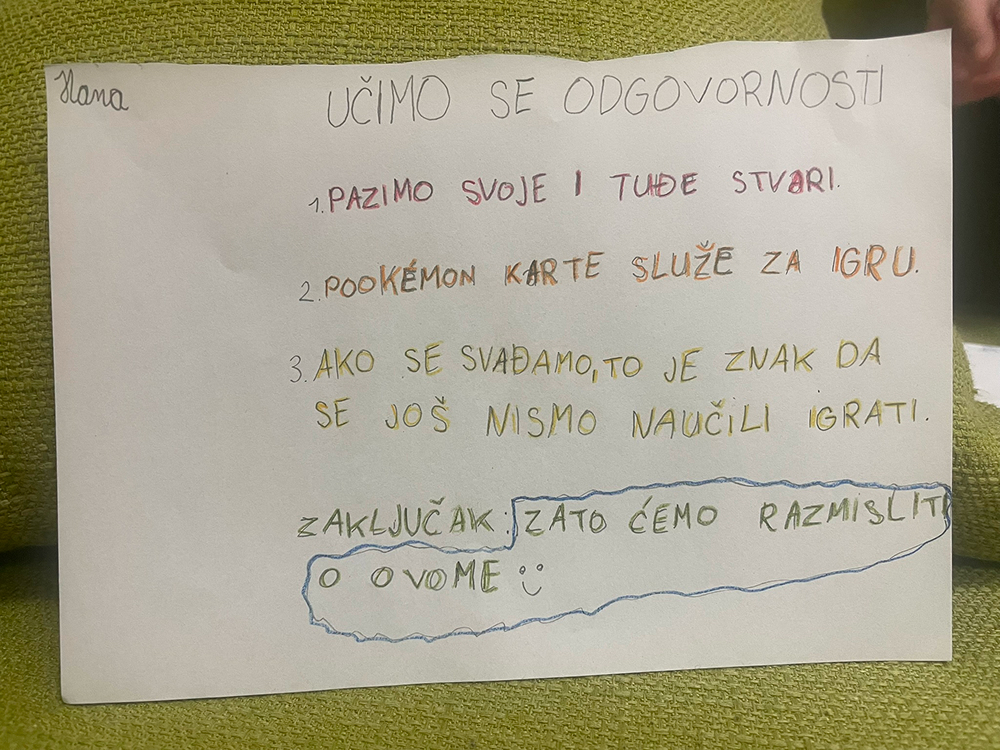 Hana
UČIMO SE ODGOVORNOSTI
1. PAZIMO SVOJE I TUĐE STVARI.
2. POOKÉMON KARTE SLUŽE ZA IGRU.
3. AKO SE SVAĐAMO, TO JE ZNAK DA
SE JOŠ NISMO NAUČILI IGRATI.
ZAKLJUČAK: ZATO ĆEMO RAZMISLITI
O OVOME :)